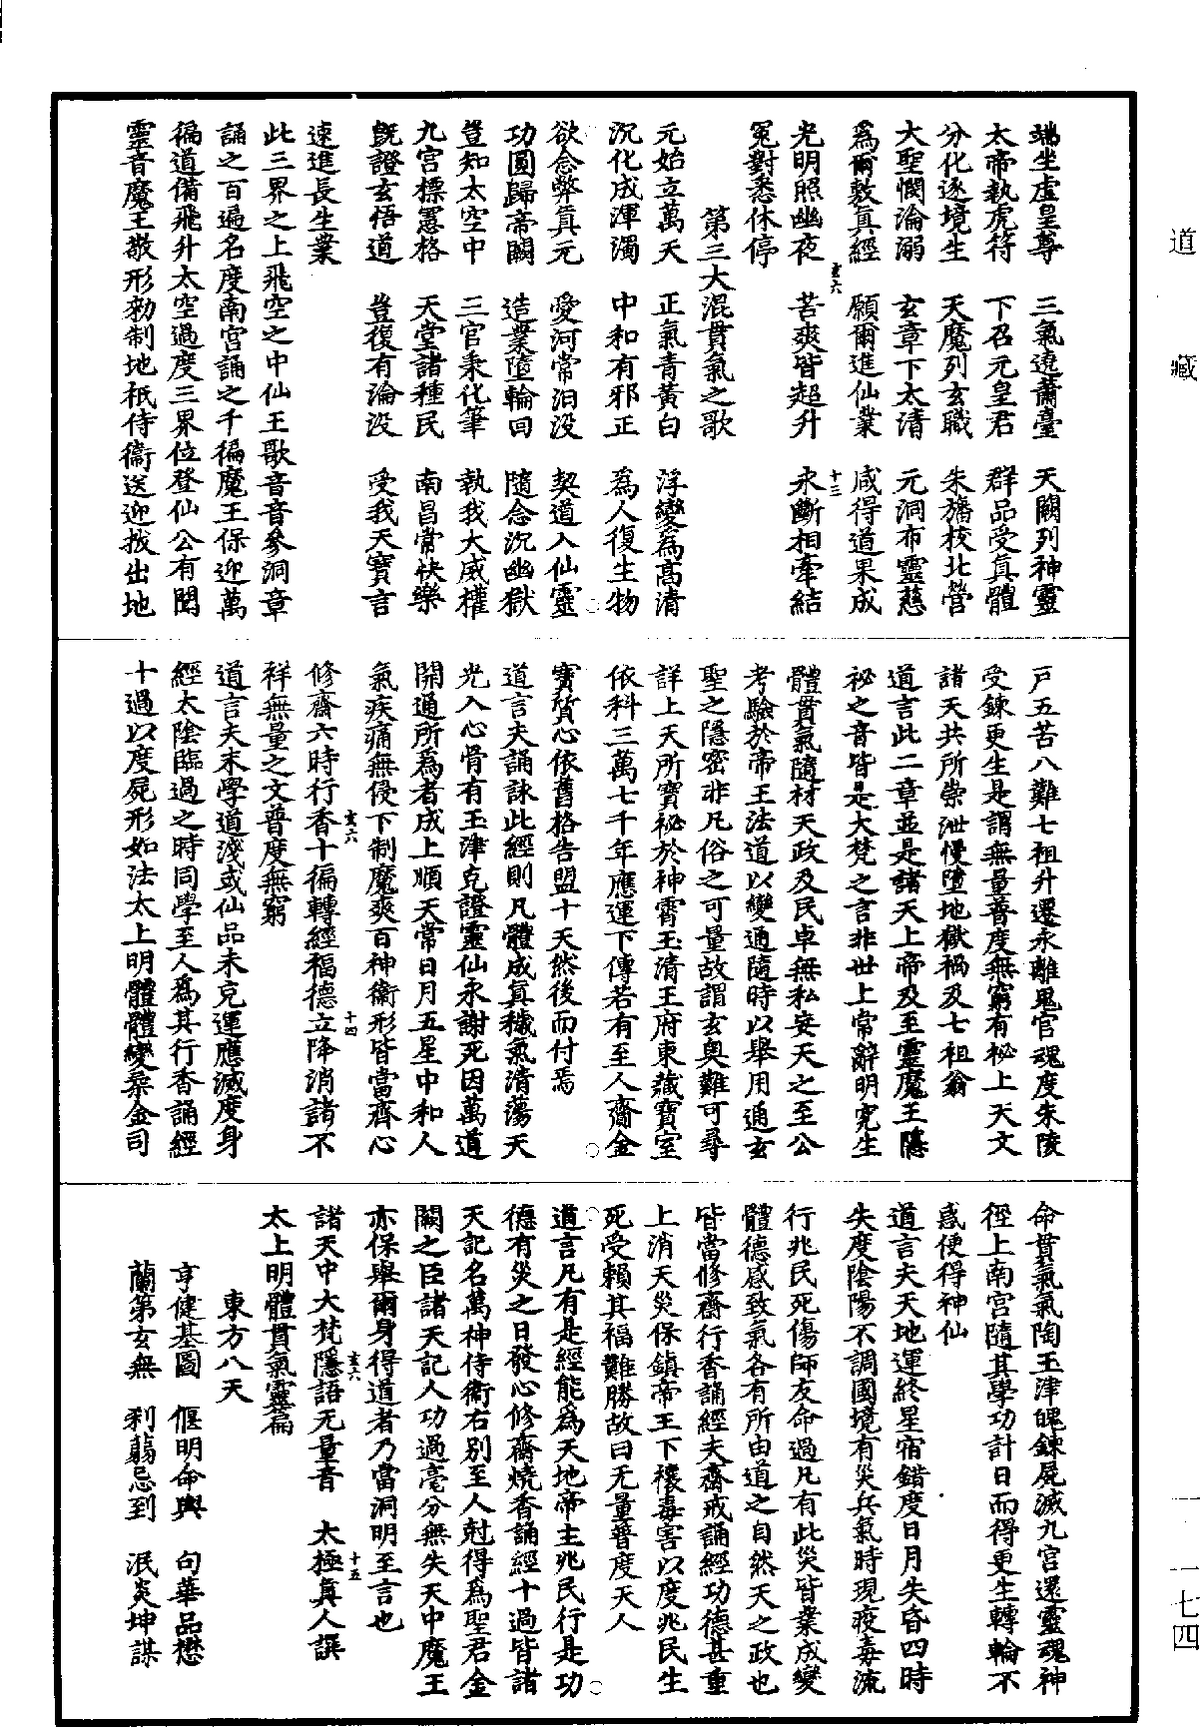 道藏
端坐虛皇尊　三氣遶蕭臺　天關列神靈
太帝執虎符　下召元皇君　群品受真體
分化逐境生　天魔列玄職　朱旛校北營
大聖憫淪溺　玄章下太清　元洞布靈慈
為爾敷真經　願爾進仙業　咸得道果成
光明照幽夜　苦爽皆超升　永斷相牽結
冤對悉休停
第三大混貫氣之歌
元始立萬天　正氣青黃白　浮變為高清
沉化成渾濁　中和有邪正　為人復生物
欲念弊真元　愛河常汩没　契道入仙靈
功圓歸帝闕　造業墮輪回　隨念沉幽獄
豈知太空中　三官秉化筆　執我大威權
九宮標憲格　天堂諸種民　南昌常快樂
既證玄悟道　豈復有淪没　受我天寶言
速進長生業
此三界之上飛空之中仙王歌音音參洞章
誦之百遍名度南宮誦之千徧魔王保迎萬
徧道備飛升太空過度三界位登仙公有聞
靈音魔王敬形勑制地祇侍衞送迎拔出地
戶五苦八難七祖升遷永離鬼官魂度朱陵
受鍊更生是謂無量普度無窮有祕上天文
諸天共所崇泄慢墮地獄禍及七祖翁
道言此二章並是諸天上帝及至靈魔王隱
祕之音皆是大梵之言非世上常辭明究生
體貫氣隨材天政及民卓無私妄天之至公
考驗於帝王法道以變通隨時以舉用通玄
聖之隱密非凡俗之可量故謂玄奧難可尋
詳上天所寶祕於神霄玉清王府東藏寶室
依科三萬七千年應運下傳若有至人齎金
寶質心依舊格告盟十天然後而付焉
道言夫誦詠此經則凡體成真穢氣清蕩天
光入心骨有玉津克證靈仙永謝死因萬道
開通所為者成上順天常日月五星中和人
氣疾痛無侵下制魔爽百神衞形皆當齊心
修齋六時行香十徧轉經福德立降消諸不
祥無量之文普度無窮
道言夫末學道淺或仙品未克運應滅度身
經太陰臨過之時同學至人為其行香誦經
十過以度屍形如法太上明體體變桑金司
命貫氣氣陶玉津魄鍊屍滅九宮還靈魂神
徑上南宮隨其學功計日而得更生轉輪不
惑便得神仙
道言夫天地運終星宿錯度日月失昏四時
失度陰陽不調國境有災兵氣時現疫毒流
行兆民死傷師友命過凡有此災皆業成變
體德感致氣各有所由道之自然天之政也
皆當修齋行香誦經夫齋戒誦經功德甚重
上消天災保鎮帝王下禳毒害以度兆民生
死受賴其福難勝故曰无量普度天人
道言凡有是經能為天地帝主兆民行是功
德有災之日發心修齋燒香誦經十過皆諸
天記名萬神侍衞右別至人尅得為聖君金
闕之臣諸天記人功過毫分無失天中魔王
亦保舉爾身得道者乃當洞明至言也
諸天中大梵隱語无量音　太極真人譔
太上明體貫氣靈扁
東方八天
亨健基圖　偃明命與　句華品懋
蘭第玄無　刹蔦忌到　泯炎坤謀
玄六
十三
玄六
十四
玄六
十五
一一七四